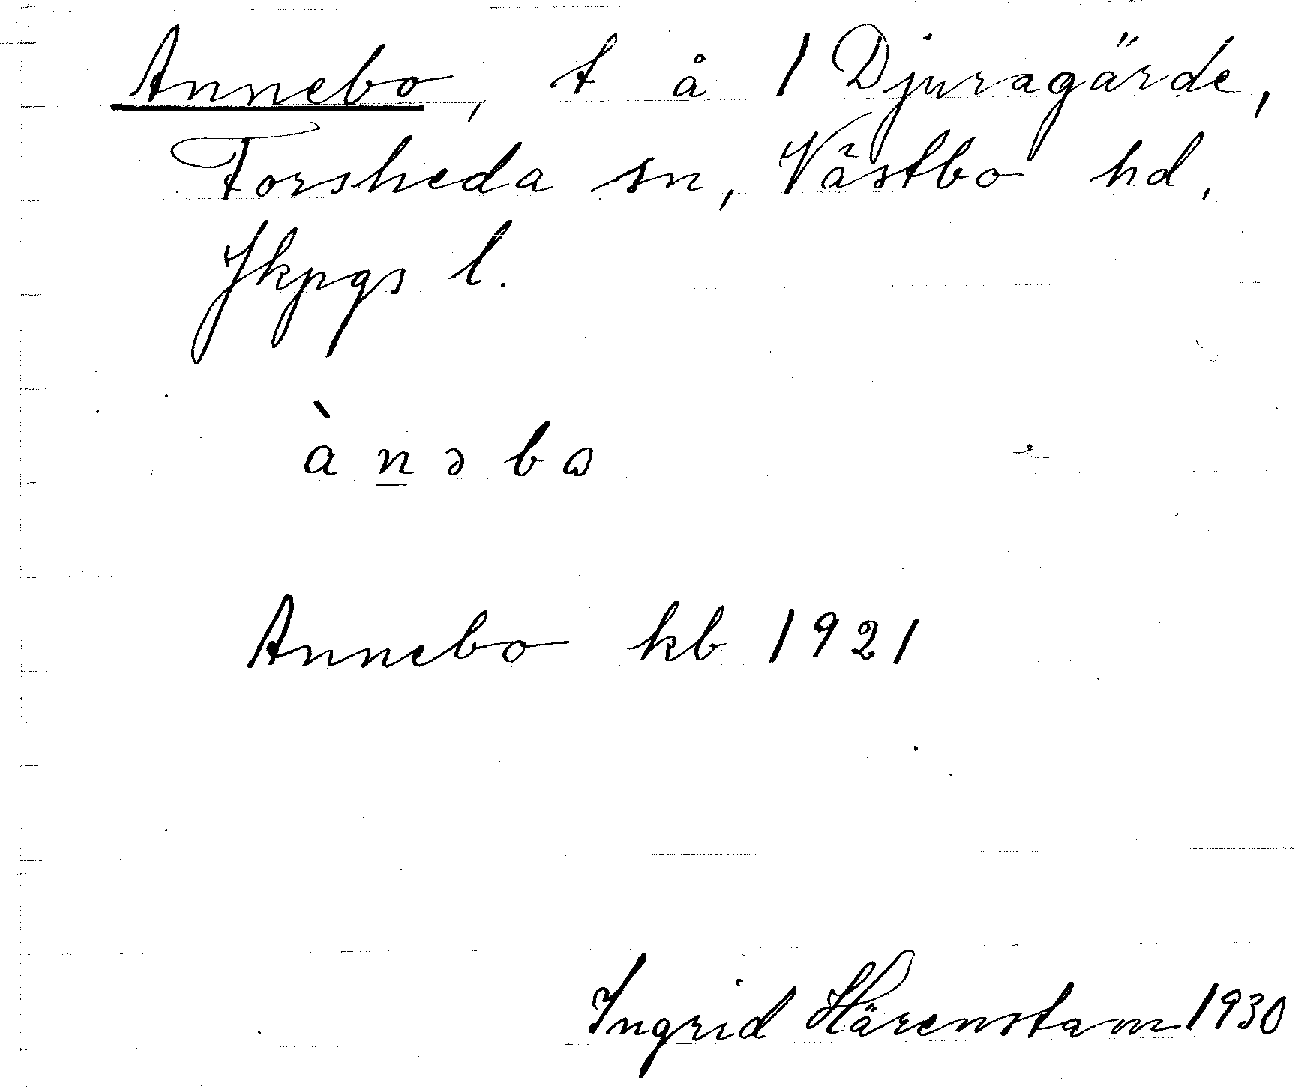 Annebo, t å 1 Djuragärde,
Forsheda sn, Västbo hd,
Jkpgs l.
àn̲əbɷ
Annebo kb 1921
Ingrid Härenstam 1930